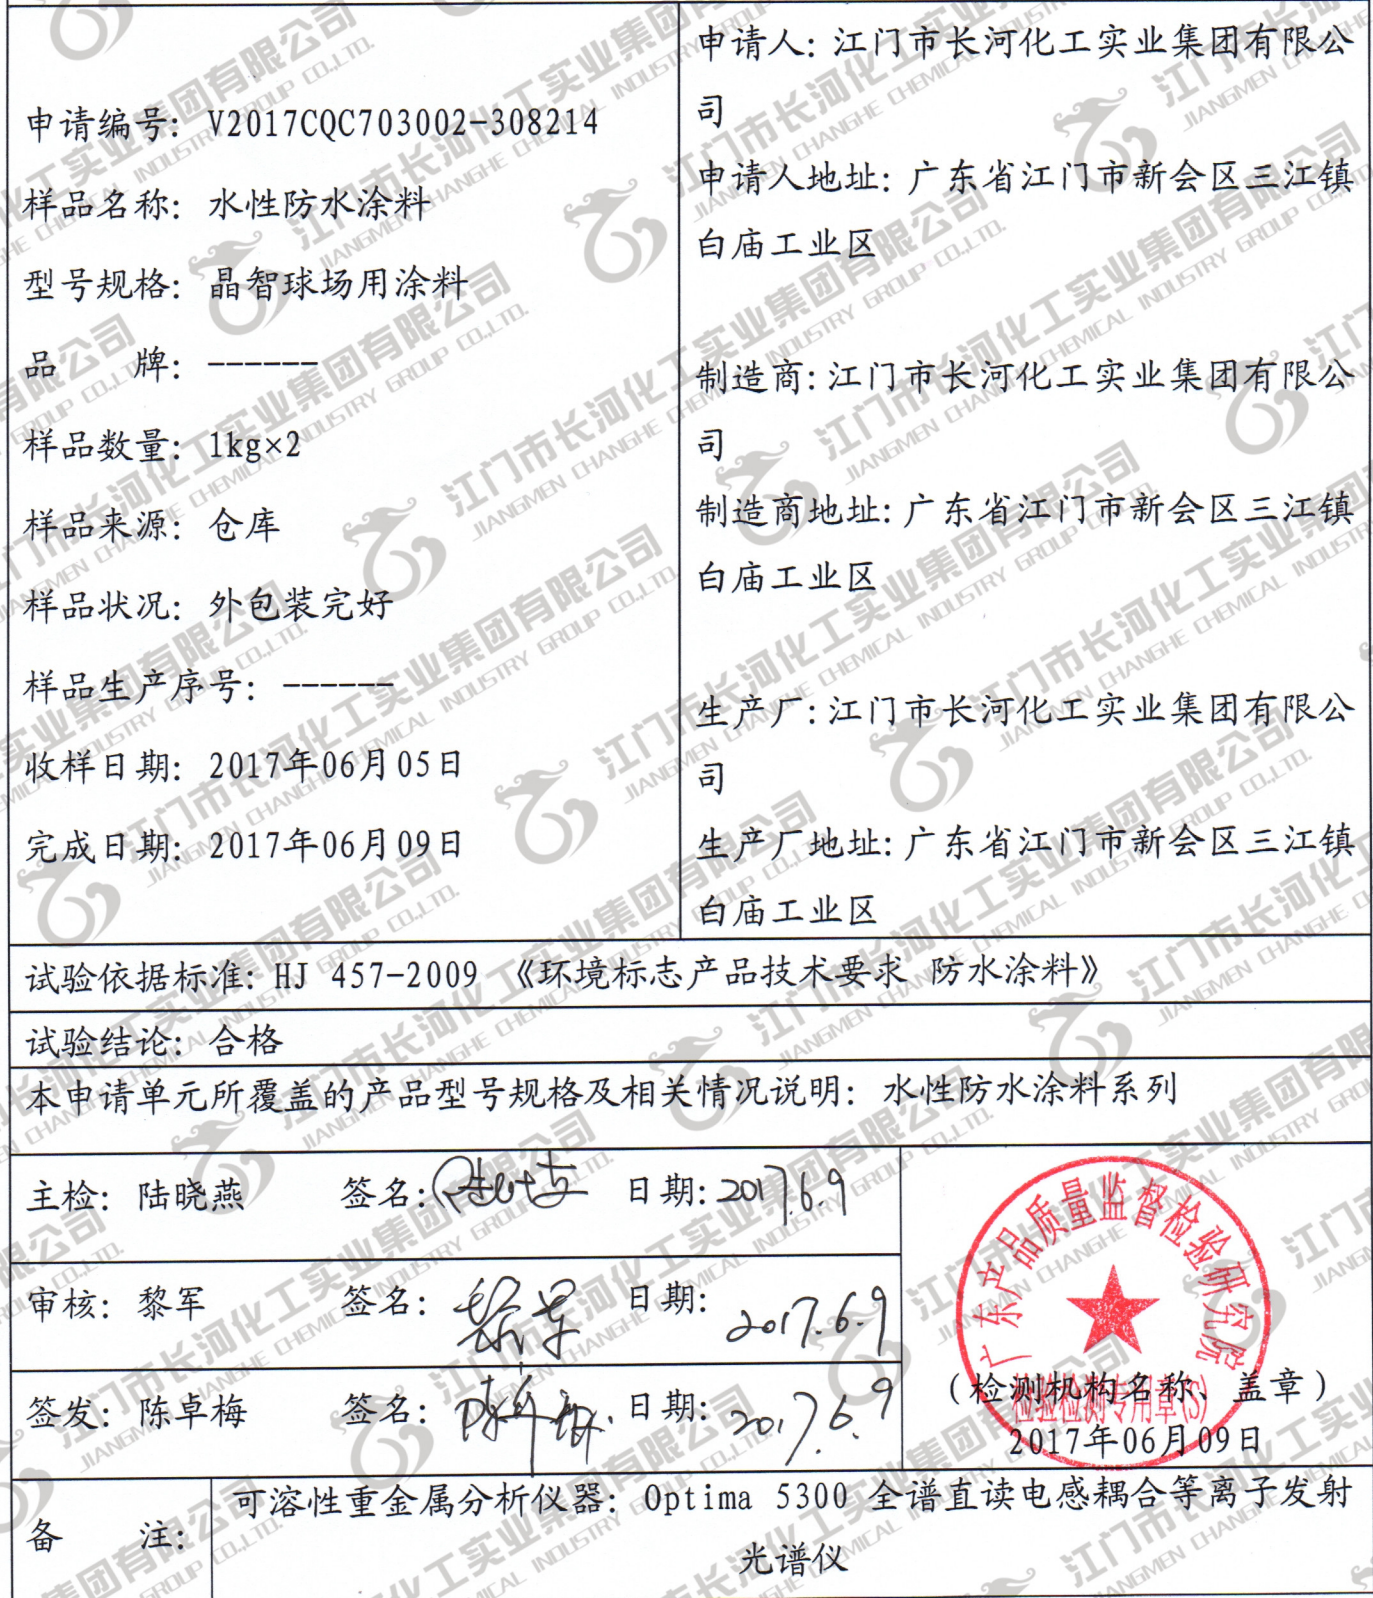 申请编号: V2017CQC703002-308214
样品名称: 水性防水涂料
型号规格: 晶智球场用涂料
品 牌: ------
样品数量: 1kg×2
样品来源: 仓库
样品状况: 外包装完好
样品生产序号: ------
收样日期: 2017年06月05日
完成日期: 2017年06月09日
申请人: 江门市长河化工实业集团有限公
司
申请人地址: 广东省江门市新会区三江镇
白庙工业区
制造商: 江门市长河化工实业集团有限公
司
制造商地址: 广东省江门市新会区三江镇
白庙工业区
生产厂: 江门市长河化工实业集团有限公
司
生产厂地址: 广东省江门市新会区三江镇
白庙工业区
试验依据标准: HJ 457-2009 《环境标志产品技术要求 防水涂料》
试验结论: 合格
本申请单元所覆盖的产品型号规格及相关情况说明: 水性防水涂料系列
主检: 陆晓燕 签名: 日期: 2017.6.9
审核: 黎军 签名: 黎军 日期: 2017.6.9
签发: 陈卓梅 签名: 日期: 2017.6.9
广东产品质量监督检验研究院
检验检测专用章(S)
(检测机构名称、盖章)
2017年06月09日
备 注: 可溶性重金属分析仪器: Optima 5300 全谱直读电感耦合等离子发射
光谱仪
江门市长河化工实业集团有限公司
JIANGMEN CHANGHE CHEMICAL INDUSTRY GROUP CO.,LTD.